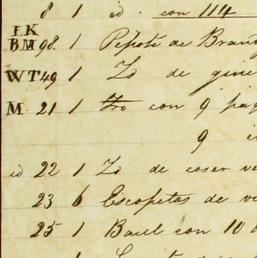 8 1 id. con 114
IK
BM 98. 1 Pipote de Brand
WT 49 1 Id de gine
M 21 1 Fro con 9 paq
9
id 22 1 Id de coser ve
23 6 Escopetas de vi
25 1 Baul con 10 d
1